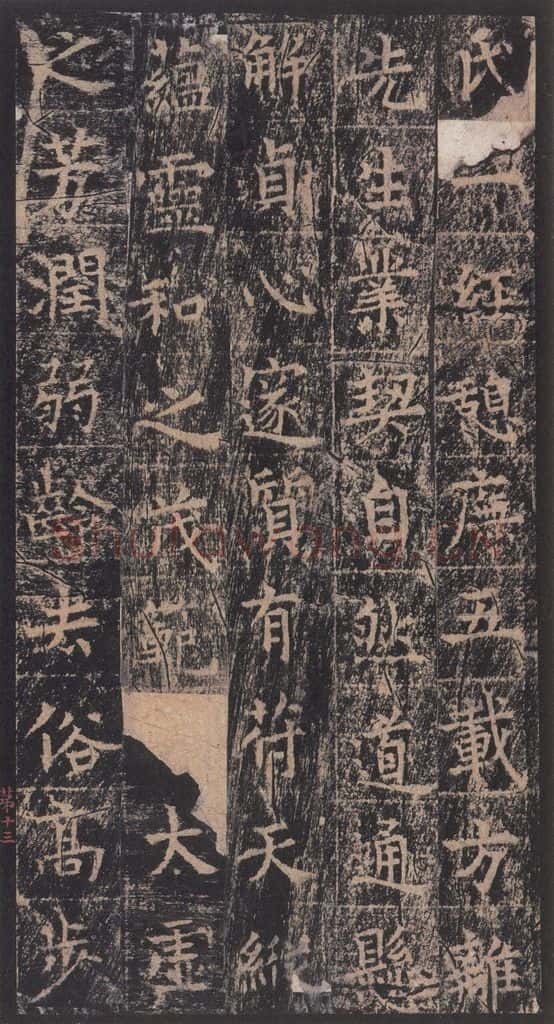 氏一經憩虛五載方離
先生業契自然道通懸
解貞心邃質有符天縱
蘊靈和之茂範大虛
之芳潤弱齡去俗高步
第十三